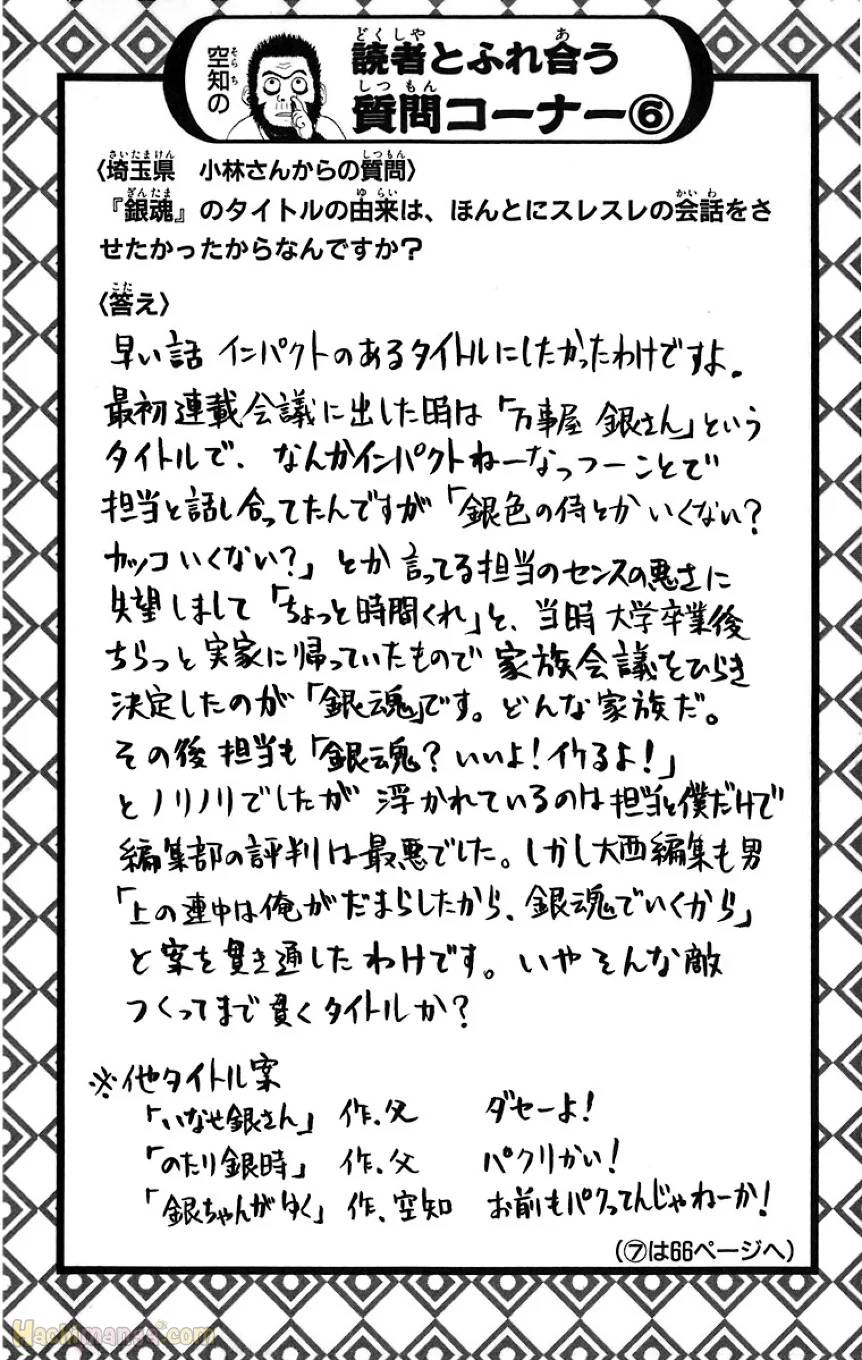 空知の
読者とふれ合う
質問コーナー⑥
〈埼玉県　小林さんからの質問〉
『銀魂』のタイトルの由来は、ほんとにスレスレの会話をさ
せたかったからなんですか？
〈答え〉
早い話 インパクトのあるタイトルにしたかったわけですよ。
最初連載会議に出した時は「万事屋 銀さん」という
タイトルで、なんかインパクトねーなっつーことで
担当と話し合ってたんですが「銀色の侍とか いくない？
カッコいくない？」とか言ってる担当のセンスの悪さに
失望しまして「ちょっと時間くれ」と、当時大学卒業後
ちらっと実家に帰っていたもので家族会議をひらき
決定したのが「銀魂」です。どんな家族だ。
その後担当も「銀魂？いいよ！イケるよ！」
とノリノリでしたが 浮かれているのは担当と僕だけで
編集部の評判は最悪でした。しかし大西編集も男
「上の連中は俺がだまらしたから、銀魂でいくから」
と案を貫き通したわけです。いやそんな敵
つくってまで貫くタイトルか？
※他タイトル案
「いなせ銀さん」 作、父 ダセーよ！
「のたり銀時」 作、父 パクリかい！
「銀ちゃんがゆく」 作、空知 お前もパクってんじゃねーか！
(⑦は66ページへ)
Hachimanga.com